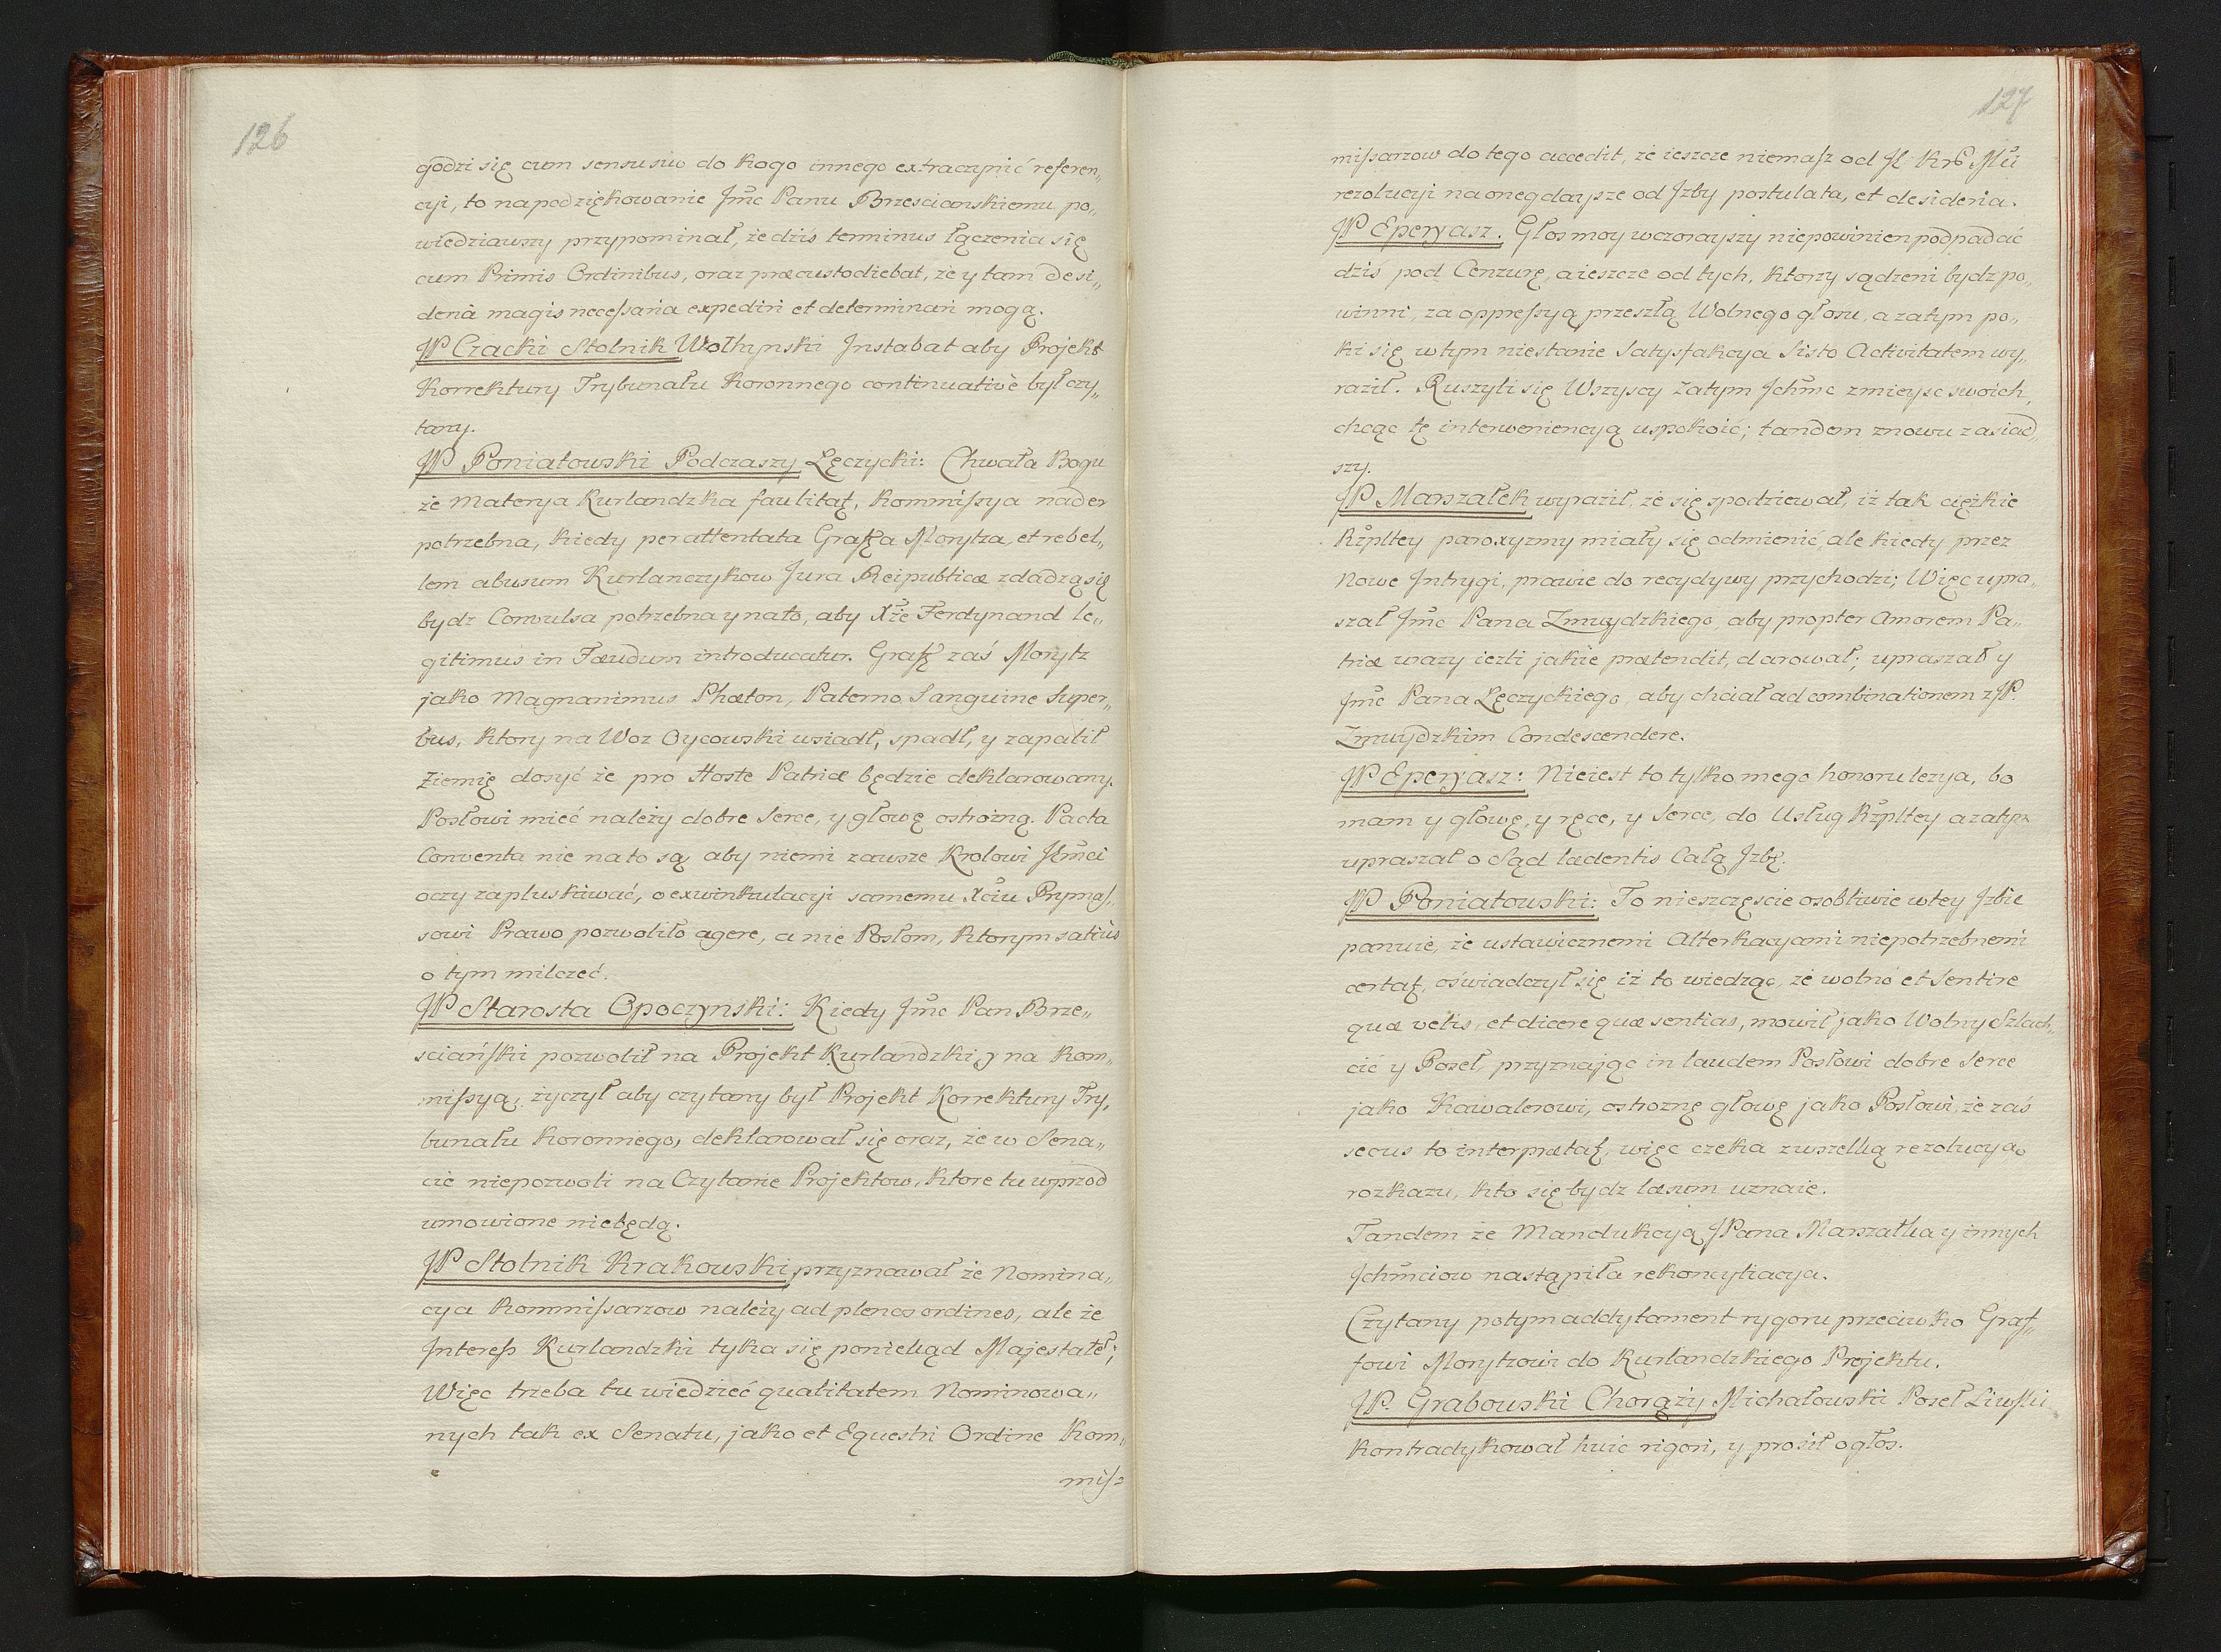 126
godzi się cum sensu suo do kogo innego extra czynić referen„
cyi, to na podziękowanie Jmc Panu Brzescianskiemu po„
wiedziawszy przypominał, że dziś terminus łączenia się
cum Primis Ordinibus, oraz præcustodiebat, że y tam desi„
deria magis necessaria expediri et determinari mogą.
JP Czacki Stolnik Wołhynski Instabat aby Projekt
Korrektury Trybunału Koronnego continuative był czy„
tany.
JP Poniatowski Podczaszy Łęczycki: Chwała Bogu
że Materya Kurlandzka facilitat, Kommissya nader
potrzebna, kiedy per attentata Graffa Morytza, et rebel„
lem abusum Kurlanczykow Jura Reipublicæ zdadzą się
bydz Convulsa potrzebna y nato, aby Xże Ferdynand le„
gitimus in Fæudum introducatur. Graff zaś Morytz
jako Magnanimus Phæton, Paterno Sanguine Super„
bus, ktory na Woz Oycowski wsiadł, spadł, y zapalił
Ziemię dosyć że pro Hoste Patriæ będzie deklarowany.
Posłowi mieć należy dobre Serce, y głowę ostrożną. Pacta
Conventa nie na to są aby niemi zawsze Krolowi Jmci
oczy zapluskiwać, o exwinkulacyi samemu Xciu Prymas„
sowi Prawo pozwoliło agere, a nie Posłom, ktorym satius
o tym milczeć.
JP Starosta Opoczynski: Kiedy Jmc Pan Brze„
sciański pozwolił na Projekt Kurlandzki y na Kom„
missyą, życzył aby czytany był Projekt Korrektury Try„
bunału Koronnego, deklarował się oraz, że w Sena„
cie niepozwoli na Czytanie Projektow, ktore tu wprzod
umowione niebędą.
JP Stolnik Krakowski przyznawał że Nomina„
cya Kommissarzow należy ad plenos ordines, ale że
Interess Kurlandzki tyka się poniekąd Majestatu;
Więc trzeba tu wiedzieć qualitatem Nominowa„
nych tak ex Senatu, jako et Equestri Ordine Kom„
mis=
127
missarzow do tego accedit, że ieszcze niemasz od J K Mci
rezolucyi na onegdaysze od Izby postulata, et desideria.
JP Eperyasz. Głos moy wczorayszy niepowinien podpadać
dziś pod Cenzurę, a ieszcze od tych, ktorzy sądzeni bydz po„
winni, za oppressyą przeszłą Wolnego głosu, a zatym po„
ki się w tym niestanie Satysfakcya Sisto Activitatem wy„
raził. Ruszyli się Wszyscy zatym Ichmc z mieysc swoich,
chcąc tę interweniencyą uspokoić; tandem znowu zasiad„
szy.
JP Marszałek wyraził, że się spodziewał, iż tak ciężkie
Rzpltey paroxyzmy miały się odmienić, ale kiedy przez
Nowe Intrygi, prawie do recydywy przychodzi; Więc upra„
szał Jmc Pana Zmuydzkiego, aby propter Amorem Pa„
triæ urazy iezli jakie prætendit, darował; upraszał y
Jmc Pana Łęczyckiego, aby chciał ad combinationem z JP.
Zmuydzkim Condescendere.
JP Eperyasz: Nieiest to tylko mego honoru lezya, bo
mam y głowę, y ręce, y Serce, do Usług Rzpltey a zatym
upraszał o Sąd lædentis Całą Izbę.
JP Poniatowski: To nieszczęscie osobliwie w tey Izbie
panuie, że ustawicznemi Alterkacyami niepotrzebnemi
certat, oświadczył się iż to wiedząc, że wolno et Sentire
quæ velis, et dicere quæ sentias, mowił jako Wolny Szlach„
cic y Poseł, przyznając in laudem Posłowi dobre Serce
jako Kawalerowi, ostrozną głowę jako Posłowi, że zaś
secus to interprætat, więc czeka z wszelką rezolucyą
rozkazu, kto się bydz læsum uznaie.
Tandem że Mandukcyą JPana Marszałka y innych
Ichmciow nastąpiła rekoncyliacya.
Czytany potym addytament rygoru przeciwko Graf„
fowi Morytzowi do Kurlandzkiego Projektu.
JP. Grabowski Chorąży Michałowski Poseł Liwski
kontradykował huic rigori, y prosił o głos.